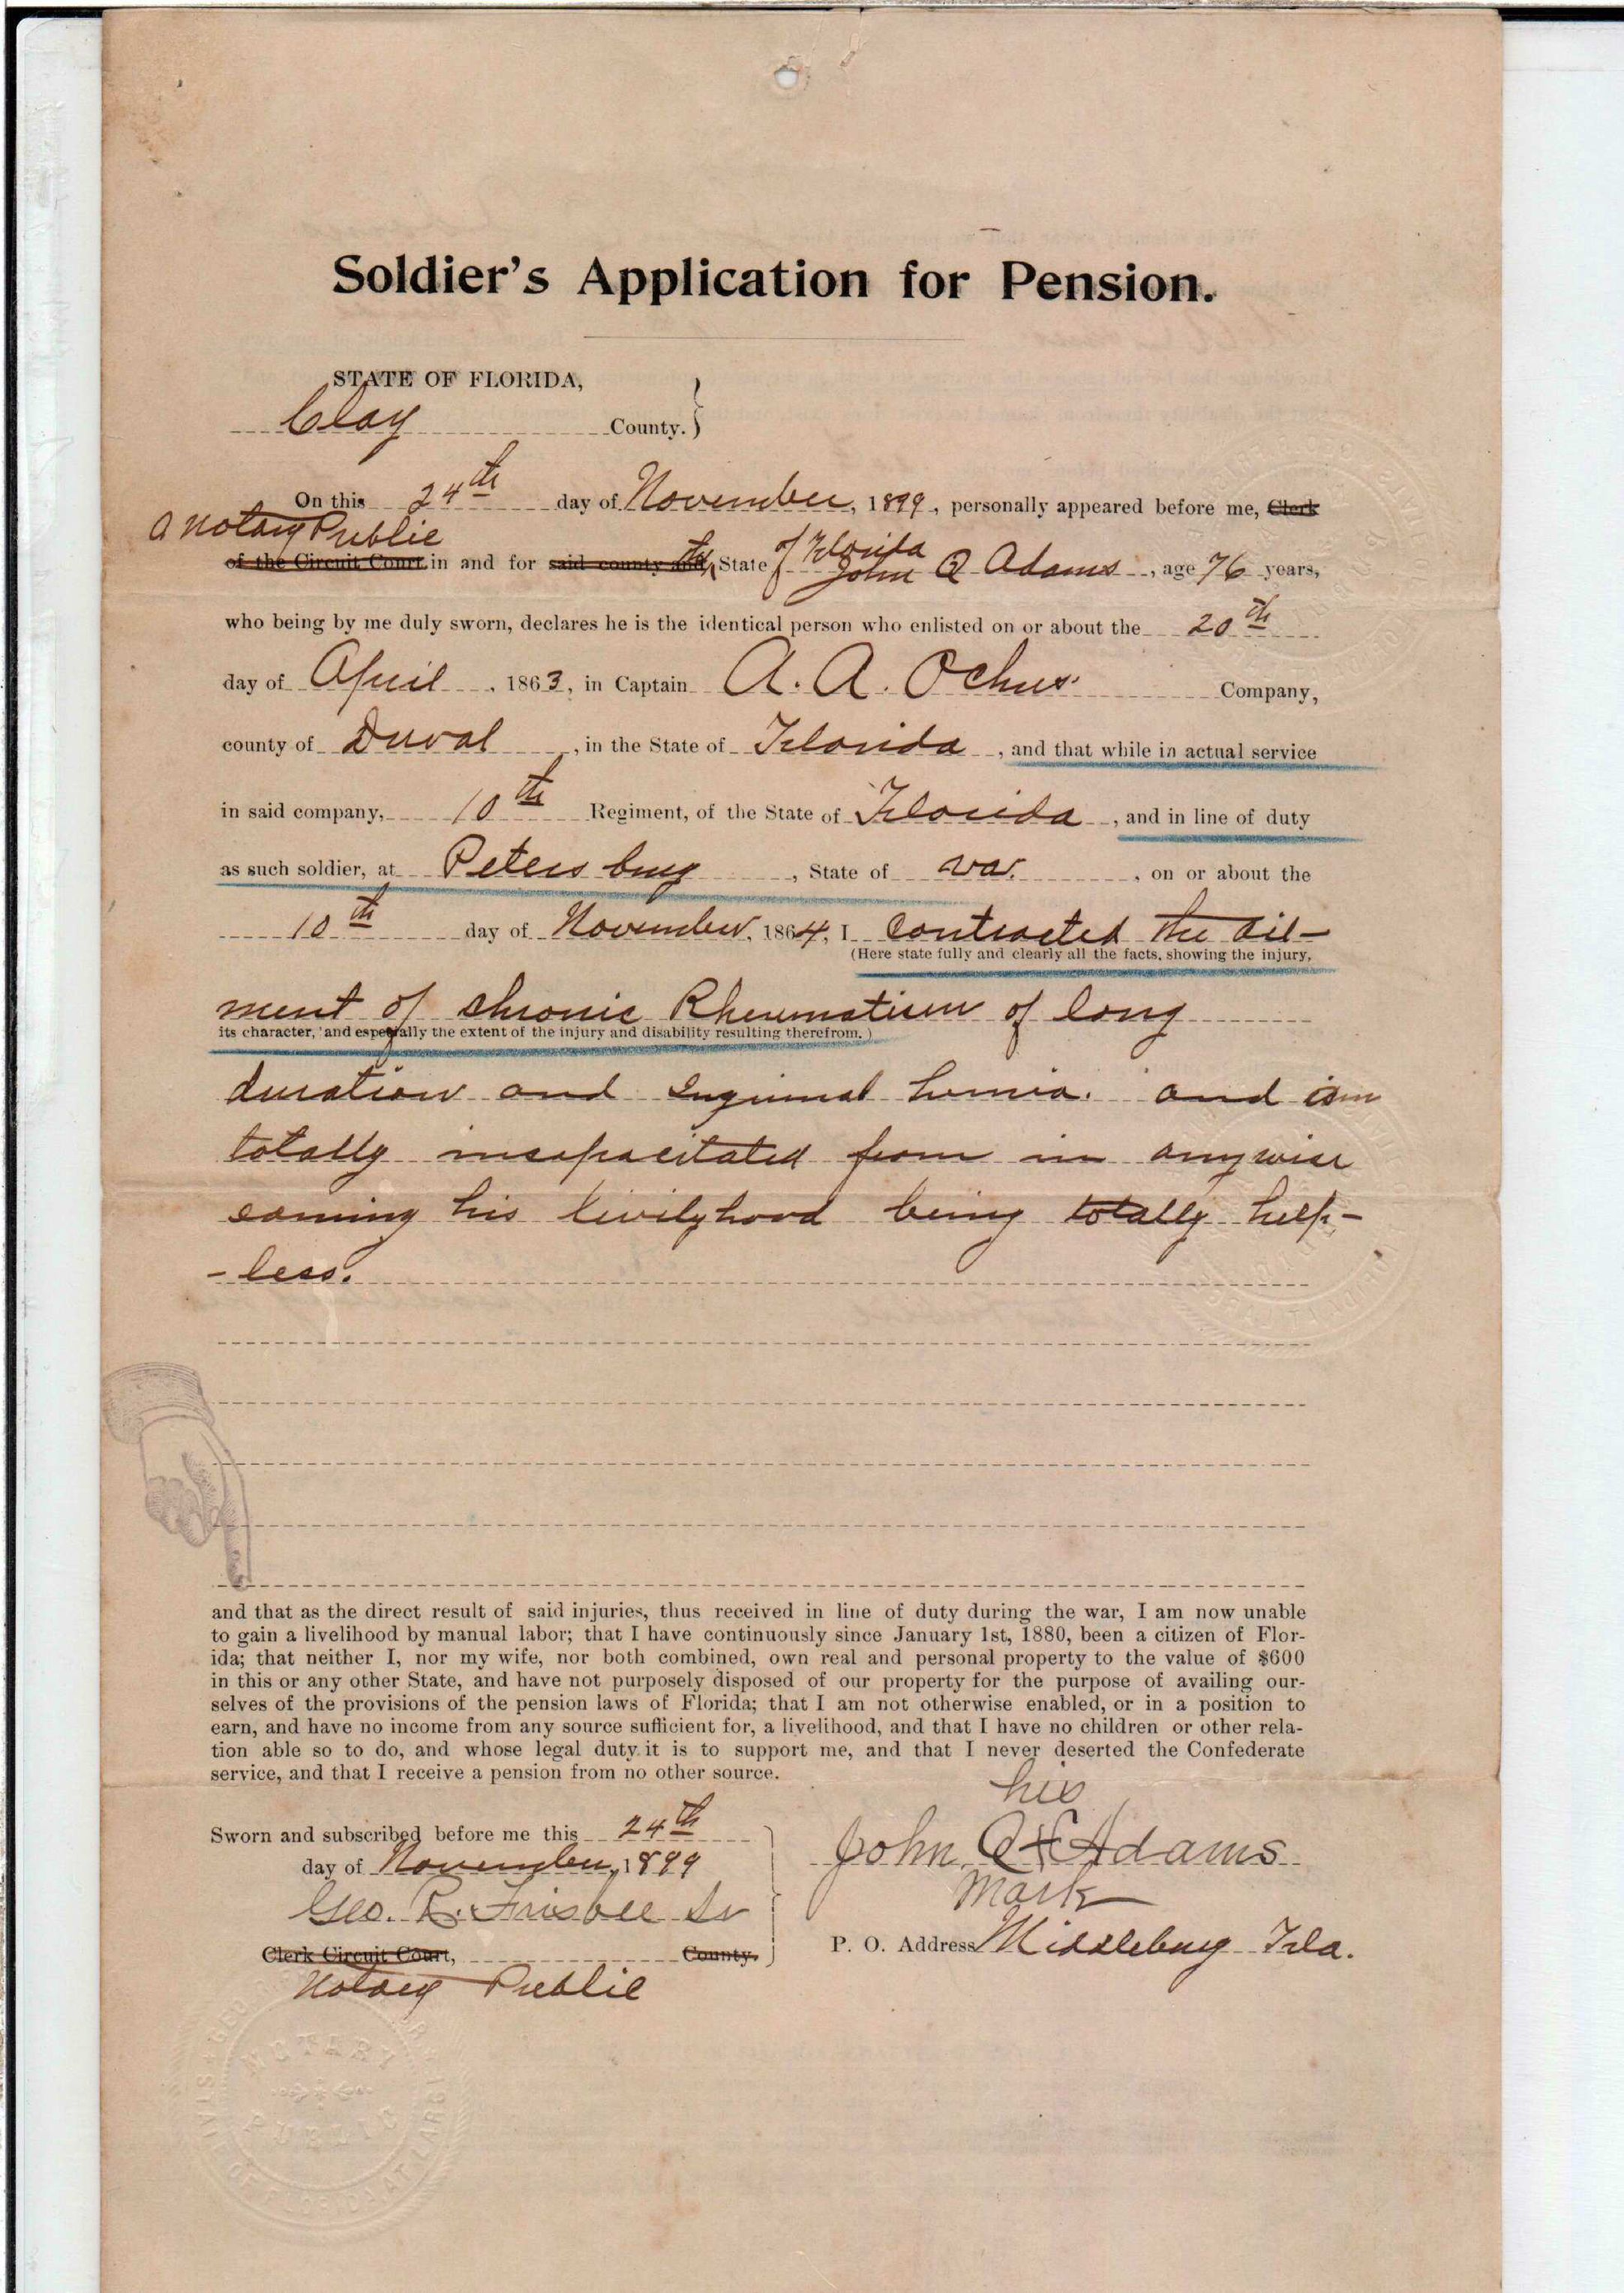 Soldier's Application for Pension.
STATE OF FLORIDA,
Clay County. }
On this 24th day of November, 1899, personally appeared before me, Clerk
a Notary Public
of the Circuit Court in and for said county and the State of Florida John Q Adams, age 76 years,
who being by me duly sworn, declares he is the identical person who enlisted on or about the 20th
day of April, 1863, in Captain A. A. Ochus Company,
county of Duval, in the State of Florida, and that while in actual service
in said company, 10th Regiment, of the State of Florida, and in line of duty
as such soldier, at Petersburg, State of Va., on or about the
10th day of November, 1864, I contracted the ail-
(Here state fully and clearly all the facts, showing the injury,
ment of chronic Rheumatism of long
its character, and especially the extent of the injury and disability resulting therefrom.)
duration and Inguinal hernia. and am
totally incapacitated from in anywise
earning his livilyhood being totally help-
-less.
and that as the direct result of said injuries, thus received in line of duty during the war, I am now unable
to gain a livelihood by manual labor; that I have continuously since January 1st, 1880, been a citizen of Flor-
ida; that neither I, nor my wife, nor both combined, own real and personal property to the value of $600
in this or any other State, and have not purposely disposed of our property for the purpose of availing our-
selves of the provisions of the pension laws of Florida; that I am not otherwise enabled, or in a position to
earn, and have no income from any source sufficient for, a livelihood, and that I have no children or other rela-
tion able so to do, and whose legal duty it is to support me, and that I never deserted the Confederate
service, and that I receive a pension from no other source.
his
Sworn and subscribed before me this 24th
John Q X Adams
day of November, 1899
mark
Geo. R. Frisbee Sr
P. O. Address Middleburg Fla.
Clerk Circuit Court, County.
Notary Public
NOTARY
PUBLIC